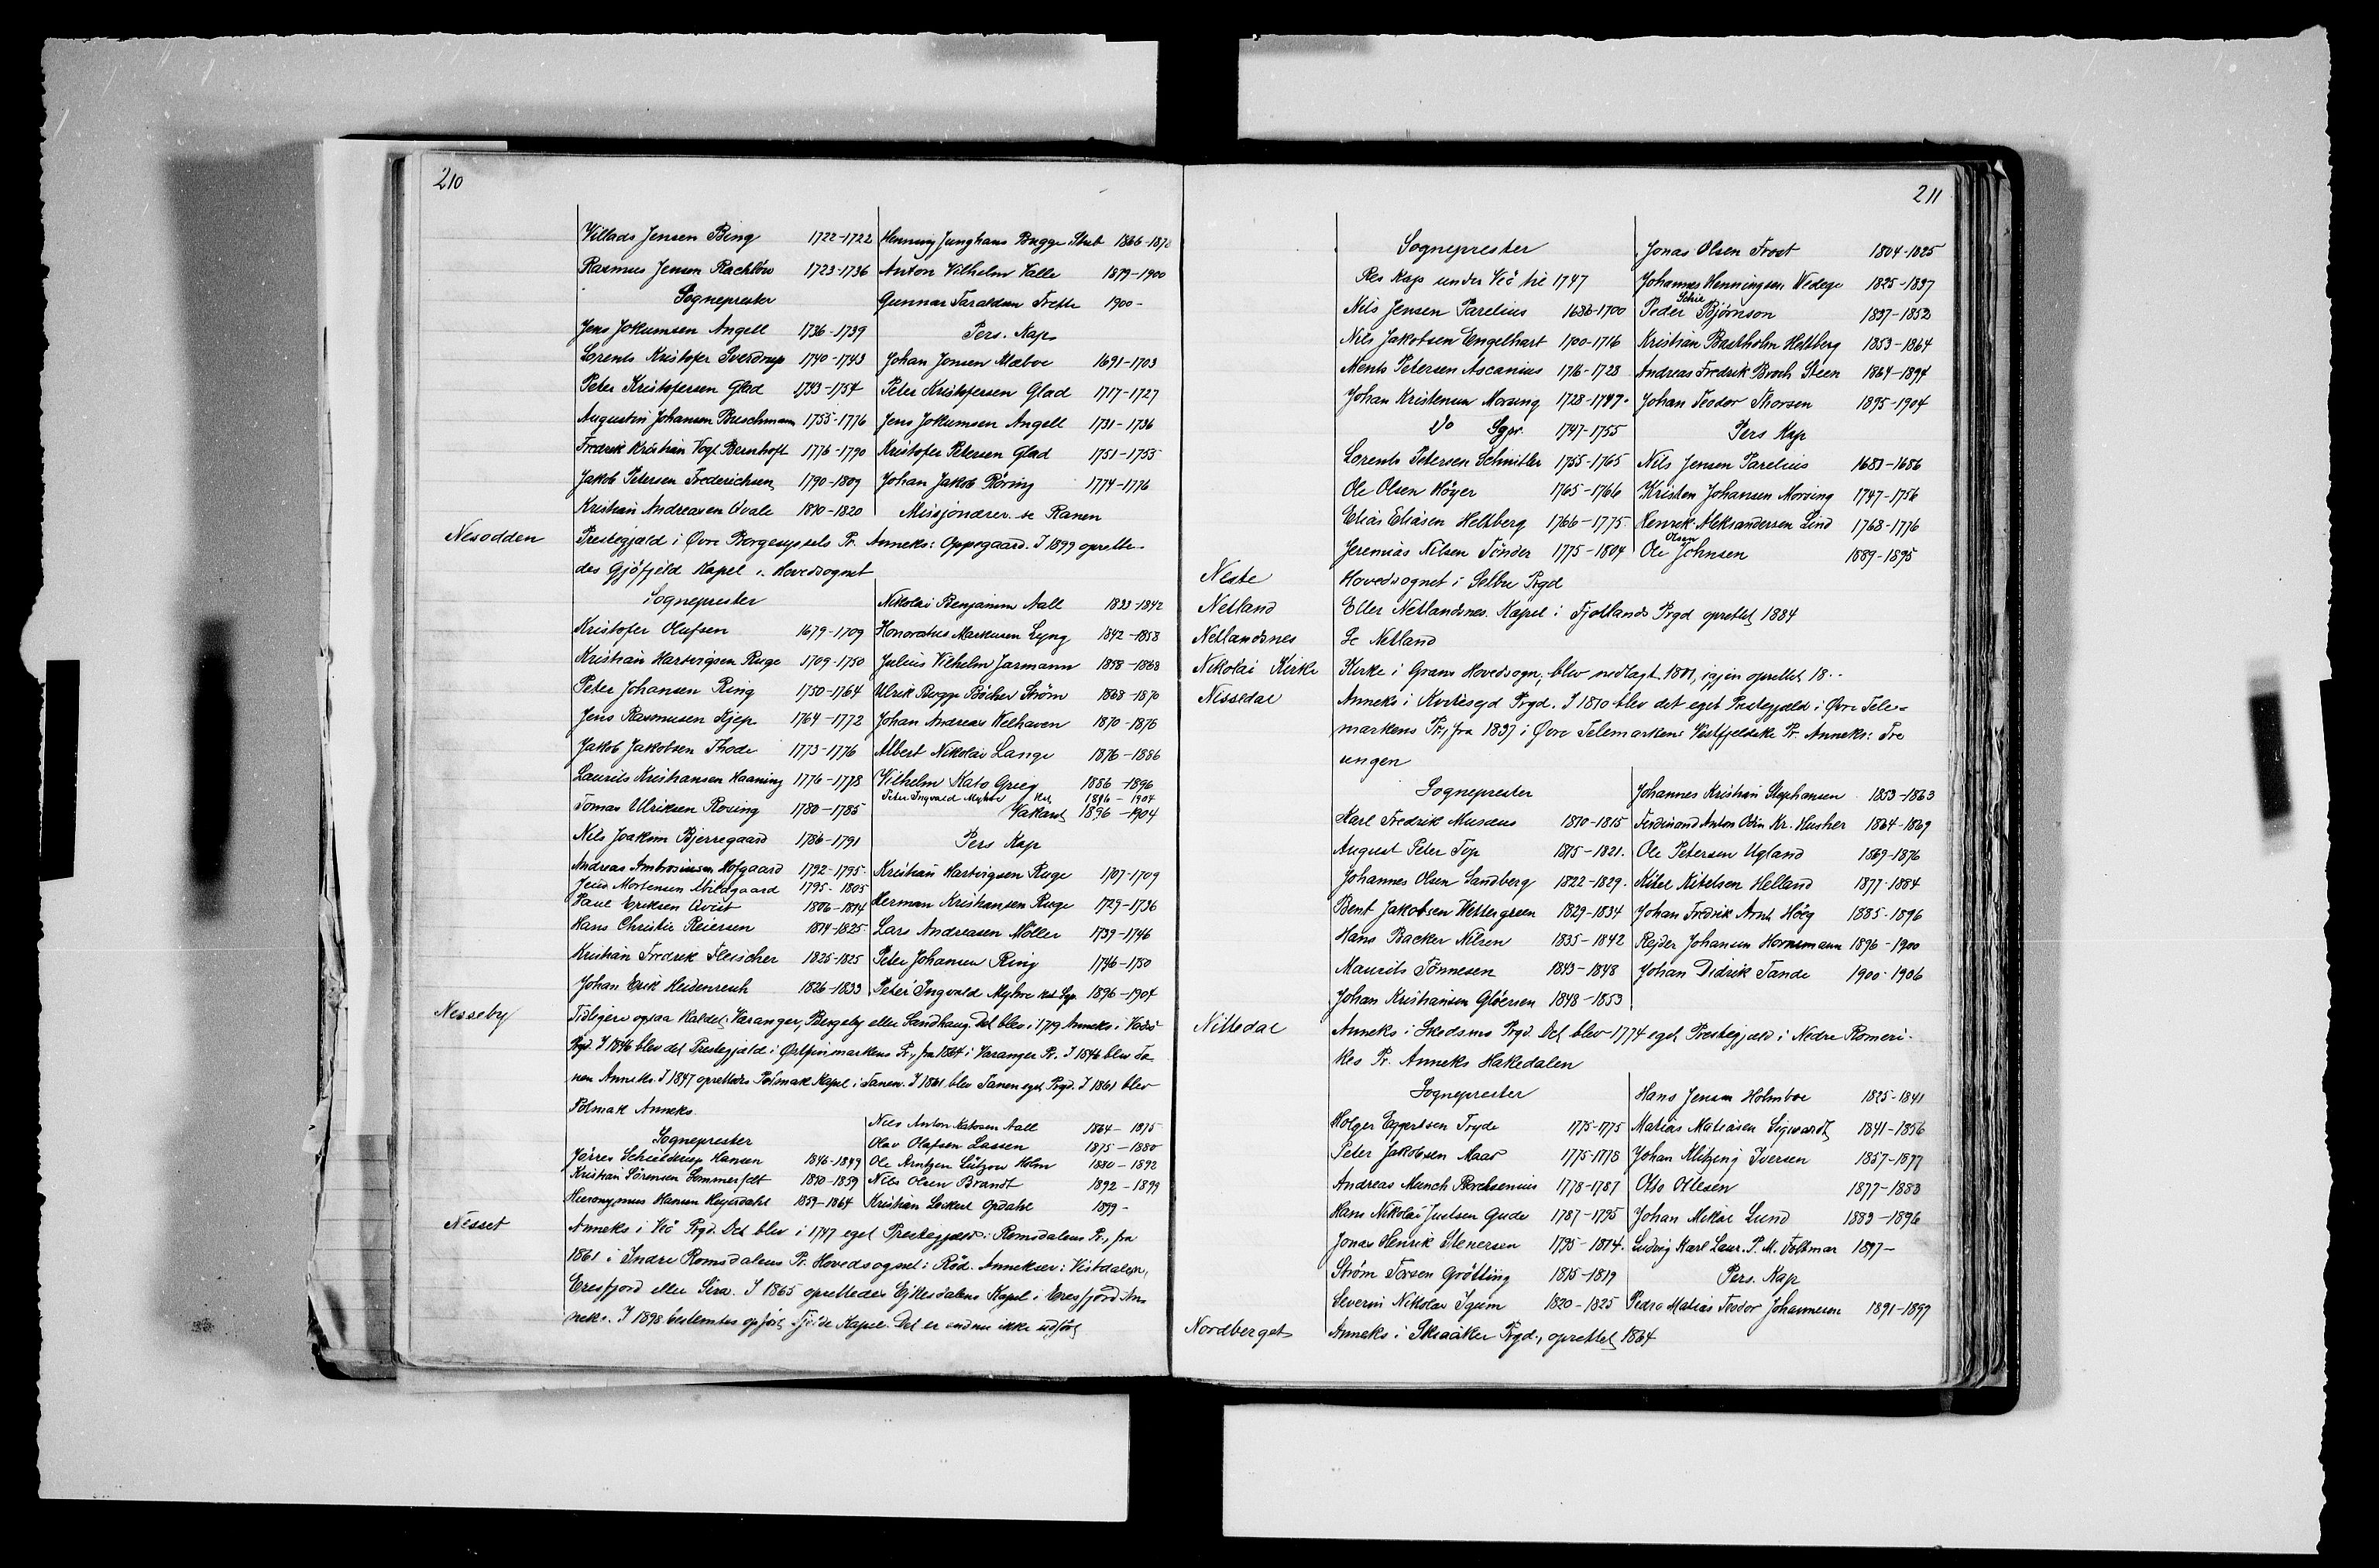 210
Villads Jensen Bing 1722-1722
Rasmus Jensen Rachlöw 1723-1736
Sogneprester
Jens Jokumsen Angell 1736-1739
Lorents Kristofer Sverdrup 1740-1743
Peter Kristofersen Glad 1743-1754
Augustin Johansen Buschmann 1755-1776
Fredrik Kristian Vogt Bernhoft 1776-1790
Jakob Petersen Frederichsen 1790-1809
Kristian Andreasen Qvale 1810-1820
Henning Junghans Bugge Stub 1866-1878
Anton Vilhelm Valle 1879-1900
Gunnar Taraldsen Trette 1900-
Pers. Kap
Johan Jonsen Mæboe 1691-1703
Peter Kristofersen Glad 1717-1727
Jens Jokumsen Angell 1731-1736
Kristofer Petersen Glad 1751-1755
Johan Jakob Röring 1774-1776
Missjonærer se Ranen
Nesodden Prestegjæld i Øvre Borgesyssels Pr. Anneks: Oppegaard. I 1899 oprette-
des Gjöfjeld Kapel i Hovedsognet
Sogneprester
Kristofer Olufsen 1679-1709
Kristian Hartvigsen Ruge 1709-1750
Peter Johansen Ring 1750-1764
Jens Rasmusen Kjep 1764-1772
Jakob Jakobsen Thode 1773-1776
Laurits Kristiansen Haaning 1776-1778
Tomas Ulriksen Rosing 1780-1785
Nils Joakim Bjerregaard 1786-1791
Andreas Ambrosiusen Mofgaard 1792-1795
Jens Mortensen Abildgaard 1795-1805
Paul Eriksen Qvist 1806-1814
Hans Christie Reiersen 1814-1825
Kristian Fredrik Fleischer 1825-1825
Johan Erik Heidenreich 1826-1833
Nikolai Benjamin Aall 1833-1842
Honoratus Markusen Lyng 1842-1858
Julius Vilhelm Jarmann 1858-1868
Ulrik Bugge Böcher Ström 1868-1870
Johan Andreas Welhaven 1870-1876
Albert Nikolai Lange 1876-1886
Vilhelm Kato Grieg 1886-1896
Peter Ingvald Myhre Kst 1896-1904
Vakant 1896-1904
Pers Kap
Kristian Hartvigsen Ruge 1707-1709
Herman Kristiansen Ruge 1729-1736
Lars Andreasen Möller 1739-1746
Peter Johansen Ring 1746-1750
Peter Ingvald Myhre kst Sgp. 1896-1904
Nesseby Tidligere ogsaa kaldet Varanger, Bergeby eller Sandhaug. Det blev i 1719 Anneks i Vadsö
Prgd. I 1846 blev det Prestegjæld i Østfinmarkens Pr., fra 1864 i Varanger Pr. I 1846 blev Ta-
nen Anneks. I 1847 oprettedes Polmak Kapel i Tanen. I 1861 blev Tanen eget Prgd. I 1861 blev
Polmak Anneks.
Sogneprester
Jörres Schielderup Hansen 1846-1849
Kristian Sörensen Sommerfelt 1850-1859
Hieronymus Hansen Heyerdahl 1859-1864
Nils Anton Katosen Aall 1864-1875
Olav Olafsen Lassen 1875-1880
Ole Arntzen Lützow Holm 1880-1892
Nils Olsen Brandt 1892-1899
Kristian Lockert Opdahl 1899-
Nesset Anneks i Veö Prgd. Det blev i 1747 eget Prestegjæld i Romsdalens Pr., fra
1861 i Indre Romsdalens Pr. Hovedsognet: Röd. Annekser: Vistdalen,
Eresfjord eller Sira. I 1865 oprettedes Eikesdalens Kapel i Eresfjord An-
neks. I 1898 bestemtes opfört Tjelde Kapel. Det er endnu ikke udfört
211
Sogneprester
Res Kap under Veö til 1747
Nils Jensen Parelius 1686-1700
Nils Jakobsen Engelhart 1700-1716
Ments Petersen Ascanius 1716-1728
Johan Kristensen Morsing 1728-1747.
Do Sgpr. 1747-1755
Lorents Petersen Schnitler 1755-1765
Ole Olsen Höyer 1765-1766
Elias Eliasen Heltberg 1766-1775
Jeremias Nilsen Tönder 1775-1804
Jonas Olsen Frost 1804-1825
Johannes Henningsen Wedege 1825-1837
Peder Schie Bjørnson 1837-1852
Kristian Bastholm Heltberg 1853-1864
Andreas Fredrik Broch Steen 1864-1894
Johan Teodor Thorsen 1895-1904
Pers Kap
Nils Jensen Parelius 1681-1686
Kristen Johansen Morsing 1747-1756
Henrik Aleksandersen Lind 1768-1776
Ole Olsen Johnsen 1889-1895
Neste Hovedsognet i Selbu Prgd
Netland Eller Netlandsnes. Kapel i Fjotlands Prgd oprettet 1884
Netlandsnes Se Netland
Nikolai Kirke Kirke i Grans Hovedsogn, blev nedlagt 1801, igjen oprettet 18..
Nissedal Anneks i Kvitesejd Prgd. I 1810 blev det eget Prestegjæld i Øvre Tele-
markens Pr., fra 1837 i Øvre Telemarkens Vestfjeldske Pr. Anneks: Tre
ungen
Sogneprester
Karl Fredrik Musæus 1810-1815
August Peter Top 1815-1821.
Johannes Olsen Sandberg 1822-1829.
Bent Jakobsen Wettergreen 1829-1834
Hans Backer Nilsen 1835-1842
Maurits Tönnesen 1843-1848
Johan Kristiansen Glöersen 1848-1853
Johannes Kristian Stephansen 1853-1863
Ferdinand Anton Odin Kr. Husher 1864-1869
Ole Petersen Ugland 1869-1876
Kitel Kitelsen Helland 1877-1884
Johan Fredrik Arnt Höeg 1885-1896
Rejder Johansen Hornemann 1896-1900
Johan Didrik Tande 1900-1906
Nittedal Anneks i Skedsmo Prgd. Det blev 1774 eget Prestegjæld i Nedre Romeri-
kes Pr. Anneks Hakedalen
Sogneprester
Holger Eggertsen Tryde 1775-1775
Peter Jakobsen Maar 1775-1778
Andreas Munch Rochsenius 1778-1787
Hans Nikolai Juelsen Gude 1787-1795
Jonas Henrik Stenersen 1795-1814.
Ström Torsen Grötting 1815-1819
Severin Nikolai Igum 1820-1825
Hans Jensen Holmboe 1825-1841
Matias Matiasen Sigwardt 1841-1856
Johan Klitzing Iversen 1857-1877
Otto Ottesen 1877-1883
Johan Mikal Lund 1883-1896
Ludvig Karl Laur. P. M. Foltmar 1897-
Pers. Kap
Pedro Matias Teodor Johannesen 1891-1899
Nordberget Anneks i Skiaaker Prgd., oprettet 1864